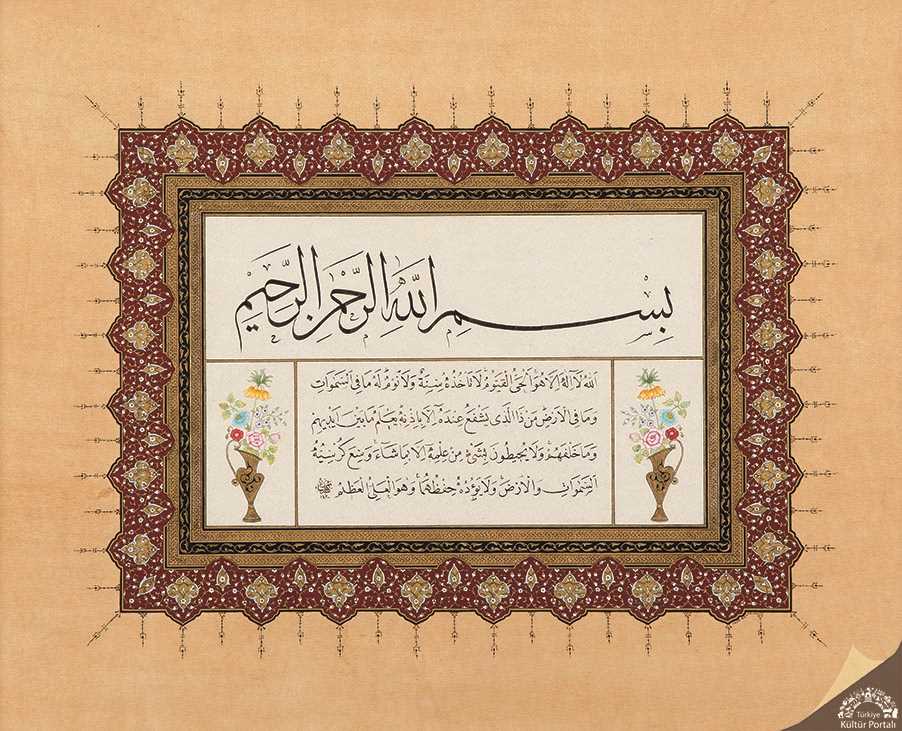 بِسْمِ اللّٰهِ الرَّحْمٰنِ الرَّحِيمِ
اَللّٰهُ لَا اِلٰهَ اِلَّا هُوَ اَلْحَىُّ الْقَيُّومُ لَا تَاْخُذُهُ سِنَةٌ وَلَا نَوْمٌ لَهُ مَا فِى السَّمٰوَاتِ
وَمَا فِى الْاَرْضِ مَنْ ذَا الَّذٖى يَشْفَعُ عِنْدَهُ اِلَّا بِاِذْنِهٖ يَعْلَمُ مَا بَيْنَ اَيْدٖيهِمْ
وَمَا خَلْفَهُمْ وَلَا يُحٖيطُونَ بِشَىْءٍ مِنْ عِلْمِهٖ اِلَّا بِمَا شَاءَ وَسِعَ كُرْسِيُّهُ
السَّمٰوَاتِ وَالْاَرْضَ وَلَا يَؤُدُهُ حِفْظُهُمَا وَهُوَ الْعَلِىُّ الْعَظٖيمُ
Türkiye
Kültür Portalı